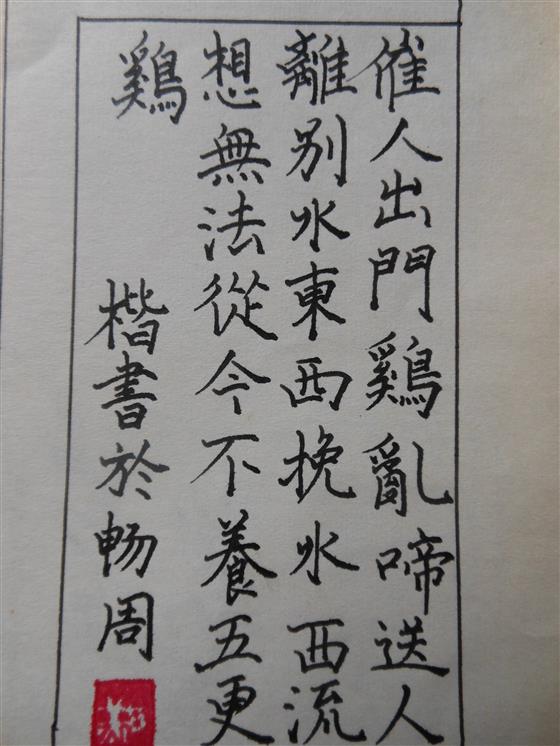 催人出門鷄亂啼送人
離别水東西挽水西流
想無法從今不養五更
鷄
楷書於畅周